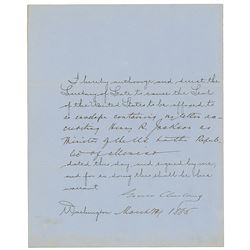 I hereby authorize and direct the
Secretary of State to cause the Seal
of the United States to be affixed to
an envelope containing my letter
Henry R. Jackson as
Minister of the U.S. to the Repub
lic of Mexico
dated this day, and signed by me,
and for so doing this shall be his
warrant
Grover Cleveland
Washington March 1885